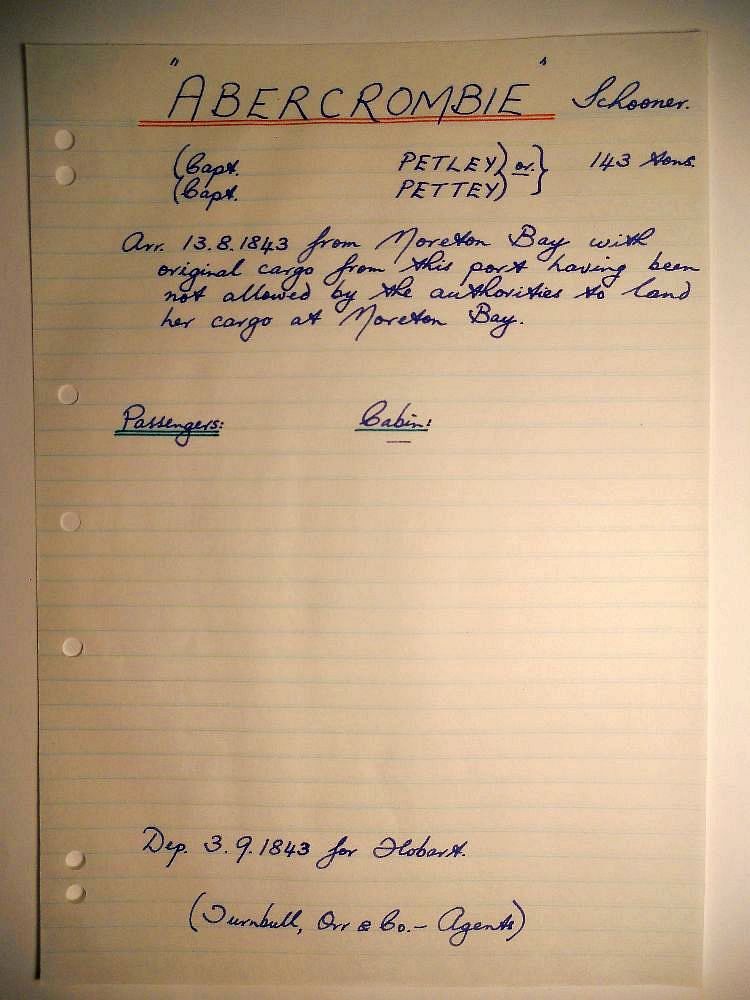 "ABERCROMBIE" Schooner.
(Capt. PETLEY) or. } 143 tons.
(Capt. PETTEY)
Arr. 13.8.1843 from Moreton Bay with
original cargo from this port having been
not allowed by the authorities to land
her cargo at Moreton Bay.
Passengers: Cabin:
—
Dep. 3.9.1843 for Hobart.
(Turnbull, Orr & Co. – Agents)